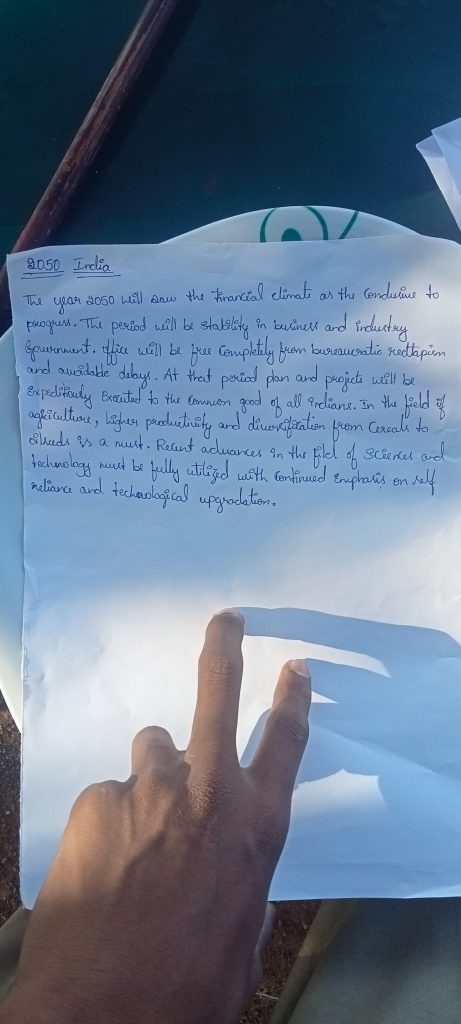 2050 India
The year 2050 will saw the Financial climate as the Conducive to
progress. The period will be stability in business and industry
Government. Office will be free Completely from bureaucratic redtapism
and avoidable delays. At that period plan and projects will be
Expeditiously Executed to the Common good of all indians. In the field of
agriculture, higher productivity and diversification from Cereals to
oilseeds is a must. Recent advances in the field of Sciences and
technology must be fully utilized with Continued Emphasis on self
reliance and technological upgradation.